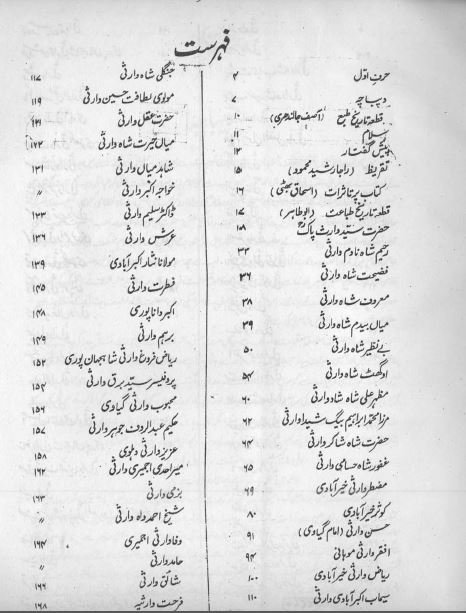 فہرست
حرفِ اوّل ۴
دیباچہ ۷
قطعہ تاریخ طبع (آصف جالندھری) ۱۰
سلام ۱۱
پیش گفتار ۱۲
تقریظ (راجا رشید محمود) ۱۵
کتاب پر تاثرات (اسحاق بھٹی) ۱۶
قطعہ تاریخ طباعت (ابوالطاہر) ۱۷
حضرت سید وارث پاکؒ ۱۸
رحیم شاہ نادم وارثی ۳۳
فضیحت شاہ وارثی ۳۶
معروف شاہ وارثی ۳۸
میاں بیدم شاہ وارثی ۳۹
بے نظیر شاہ وارثی ۵۰
اوگھٹ شاہ وارثی ۵۴
مظہر علی شاہ شاد وارثی ۶۰
مرزا محمد ابراہیم بیگ شیدا وارثی ۶۲
حضرت شاہ شاکر وارثی ۶۴
غفور شاہ حسامی وارثی ۶۵
مضطر وارثی خیرآبادی ۶۹
کوثر خیرآبادی ۸۰
حسن وارثی (امام گیاوی) ۹۱
افقر وارثی موہانی ۹۴
ریاض وارثی خیرآبادی ۱۰۰
سیماب اکبرآبادی وارثی ۱۱۰
جنگلی شاہ وارثی ۱۱۷
مولوی لطافت حسین وارثی ۱۱۹
حضرت عقل وارثی ۱۲۱
میاں حیرت شاہ وارثی ۱۲۳
شاہد میاں وارثی ۱۳۱
خواجہ اکبر وارثی "
ڈاکٹر سلیم وارثی ۱۳۳
عرش وارثی ۱۳۶
مولانا نثار اکبرآبادی ۱۳۹
فطرت وارثی ۱۴۵
اکبر داناپوری ۱۴۸
برہم وارثی ۱۴۹
ریاض فروغ وارثی شاہجہان پوری ۱۵۲
پروفیسر سید برق وارثی ۱۵۴
محبوب وارثی گیاوی ۱۵۶
حکیم عبدالروف جوہر وارثی ۱۵۷
عزیز وارثی دہلوی ۱۵۸
میر احدی اجمیری وارثی ۱۶۲
بزمی وارثی ۱۶۳
شیخ احمد داہ وارثی "
وفا وارثی اجمیری ۱۶۴
حامد وارثی "
شائق وارثی ۱۶۶
فرحت وارثیہ ۱۶۸